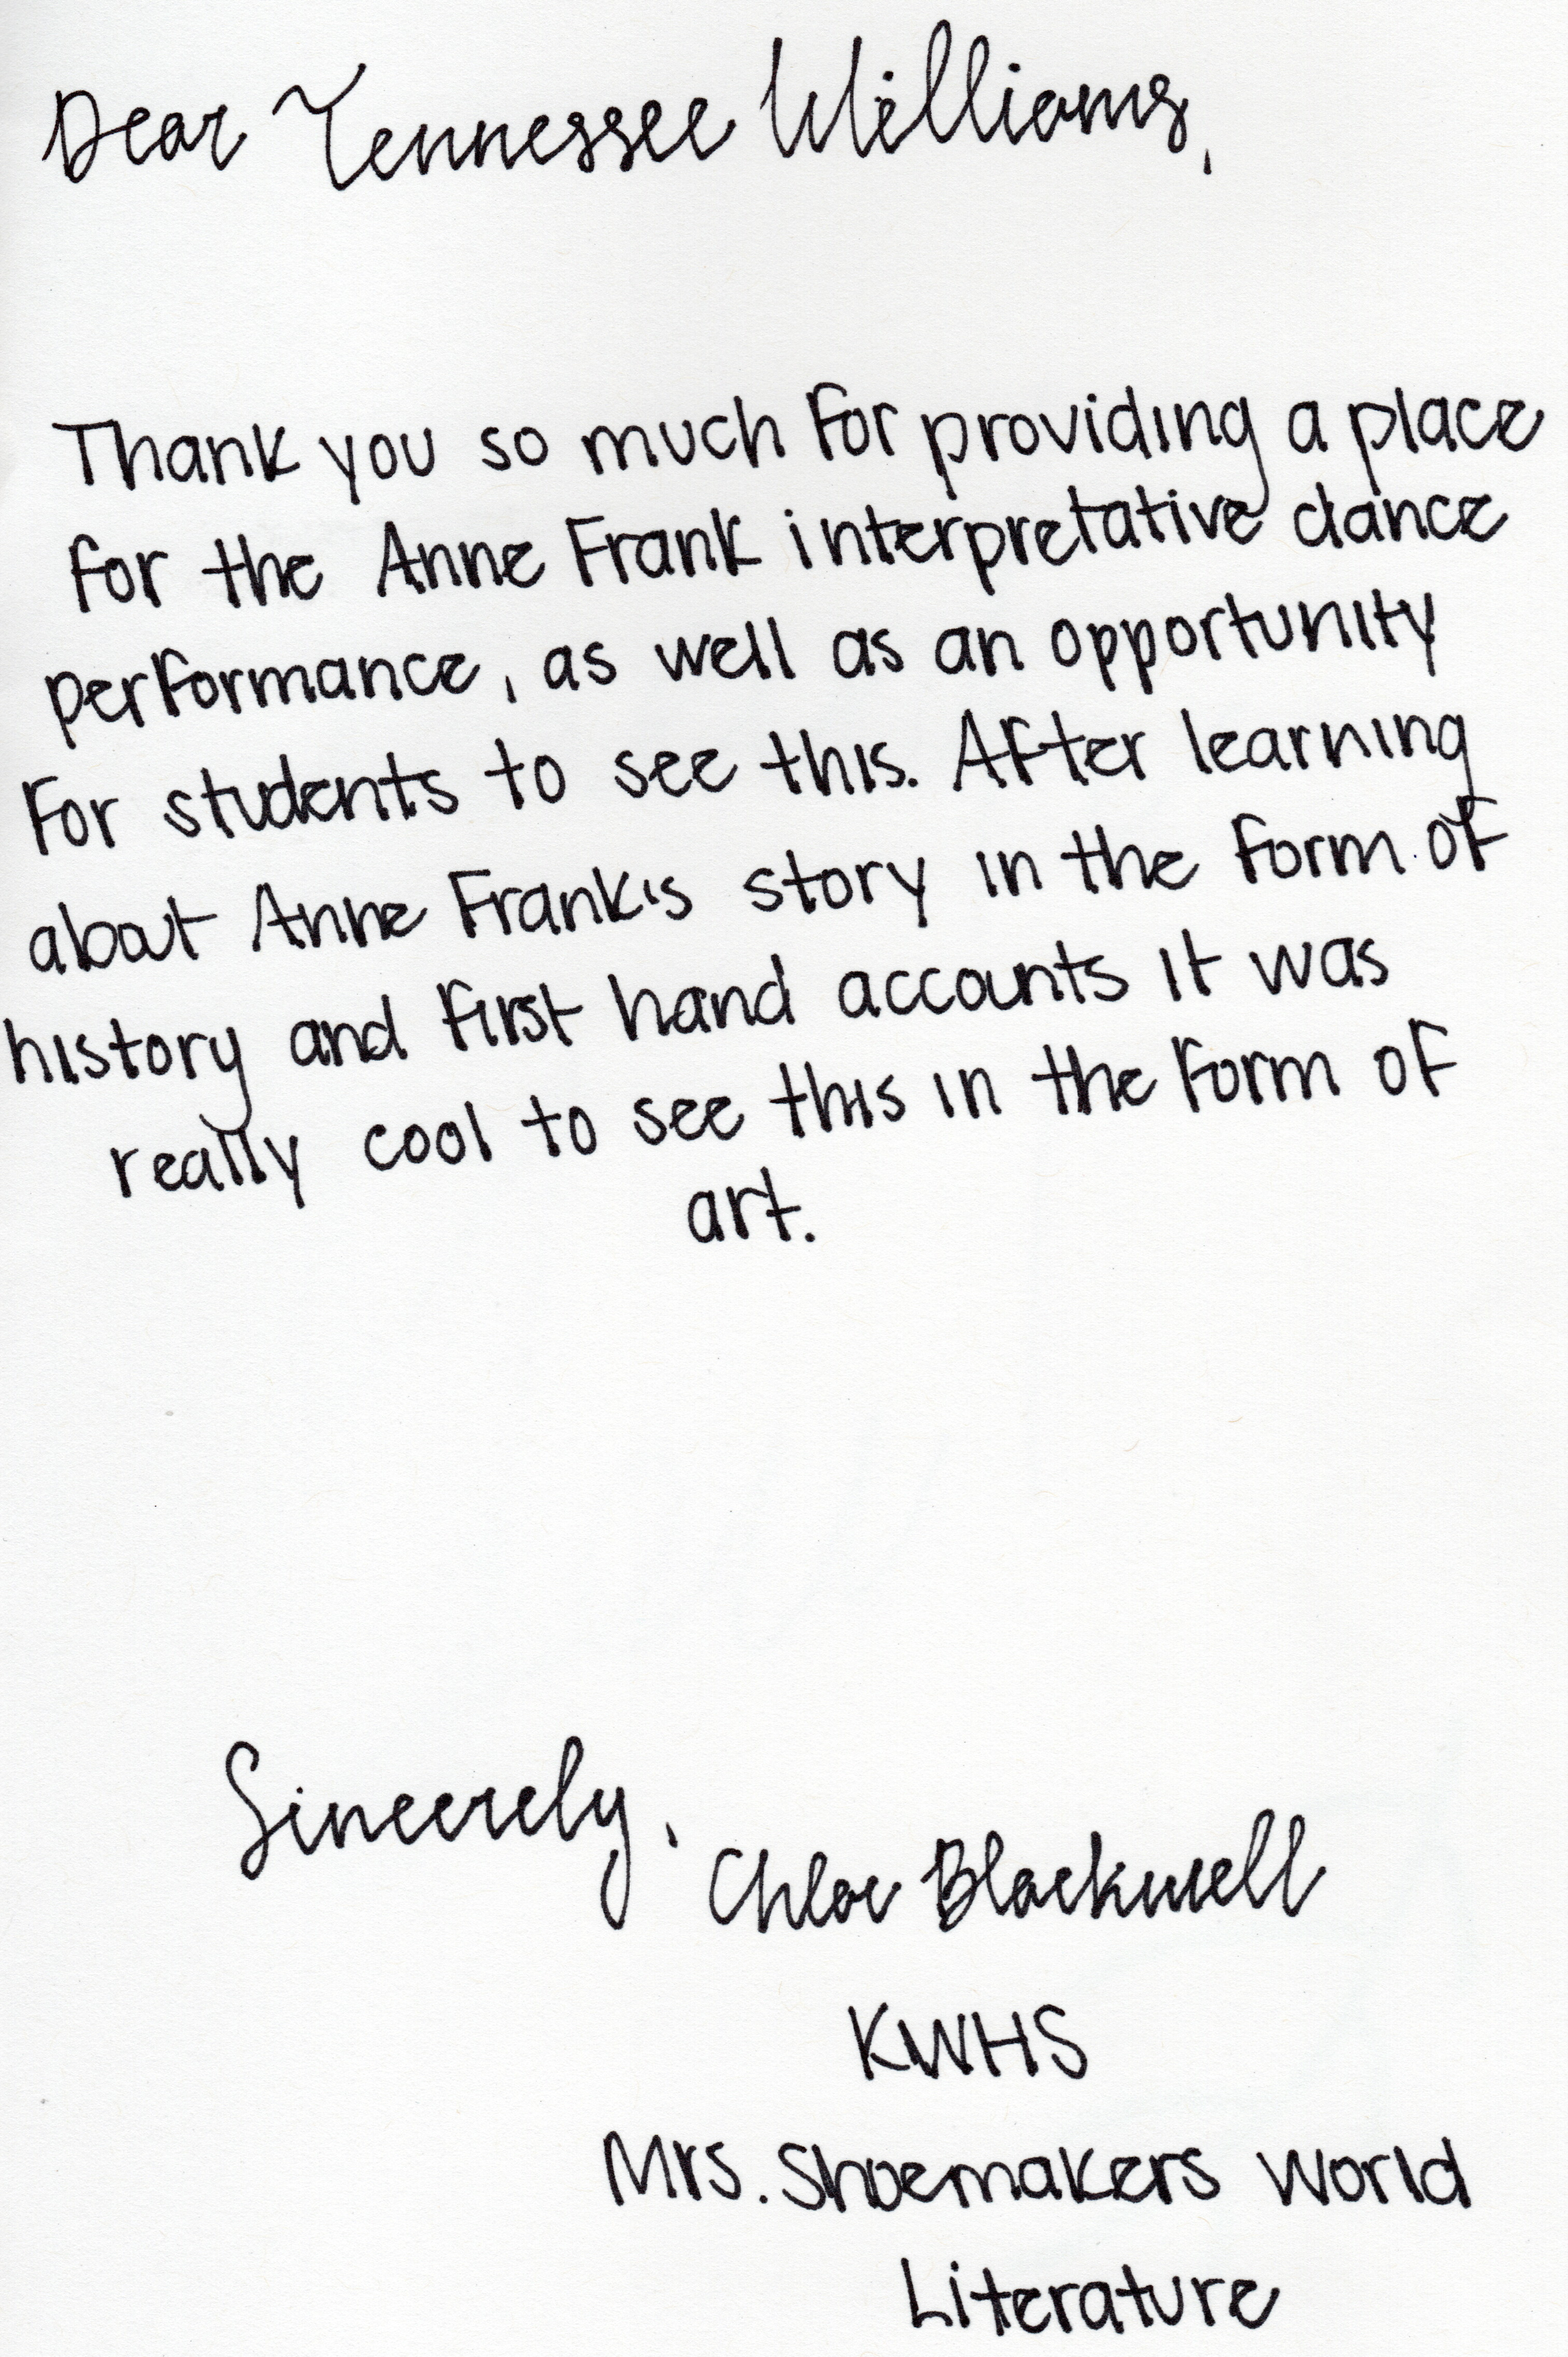 Dear Tennessee Williams,
Thank you so much for providing a place
for the Anne Frank interpretative dance
performance, as well as an opportunity
for students to see this. After learning
about Anne Frank's story in the form of
history and first hand accounts it was
really cool to see this in the form of
art.
Sincerely,
Chloe Blackwell
KWHS
Mrs. Shoemakers World
Literature